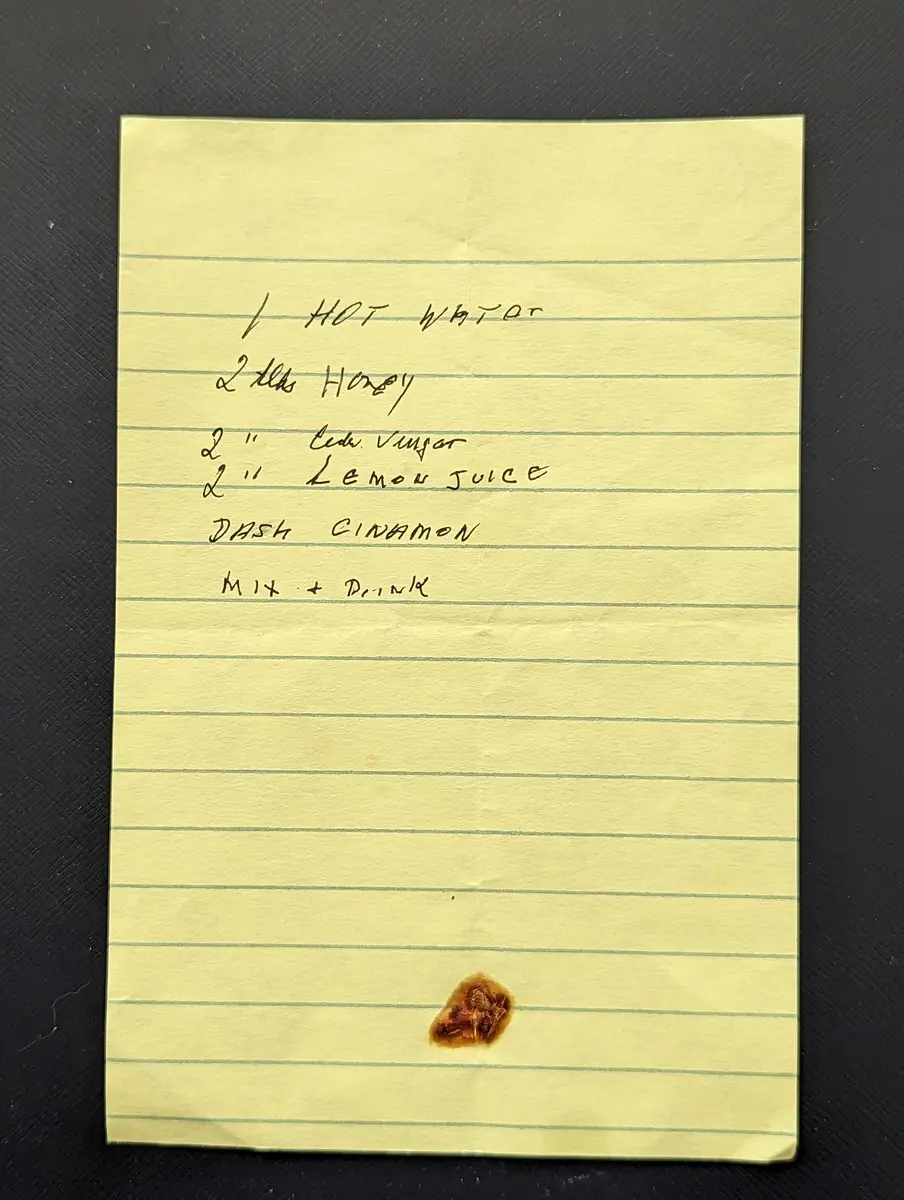 1 HOT WATER
2 tbls Honey
2 " Cedr. Vingar
2 " LEMON JUICE
DASH CINAMON
MIX + Drink